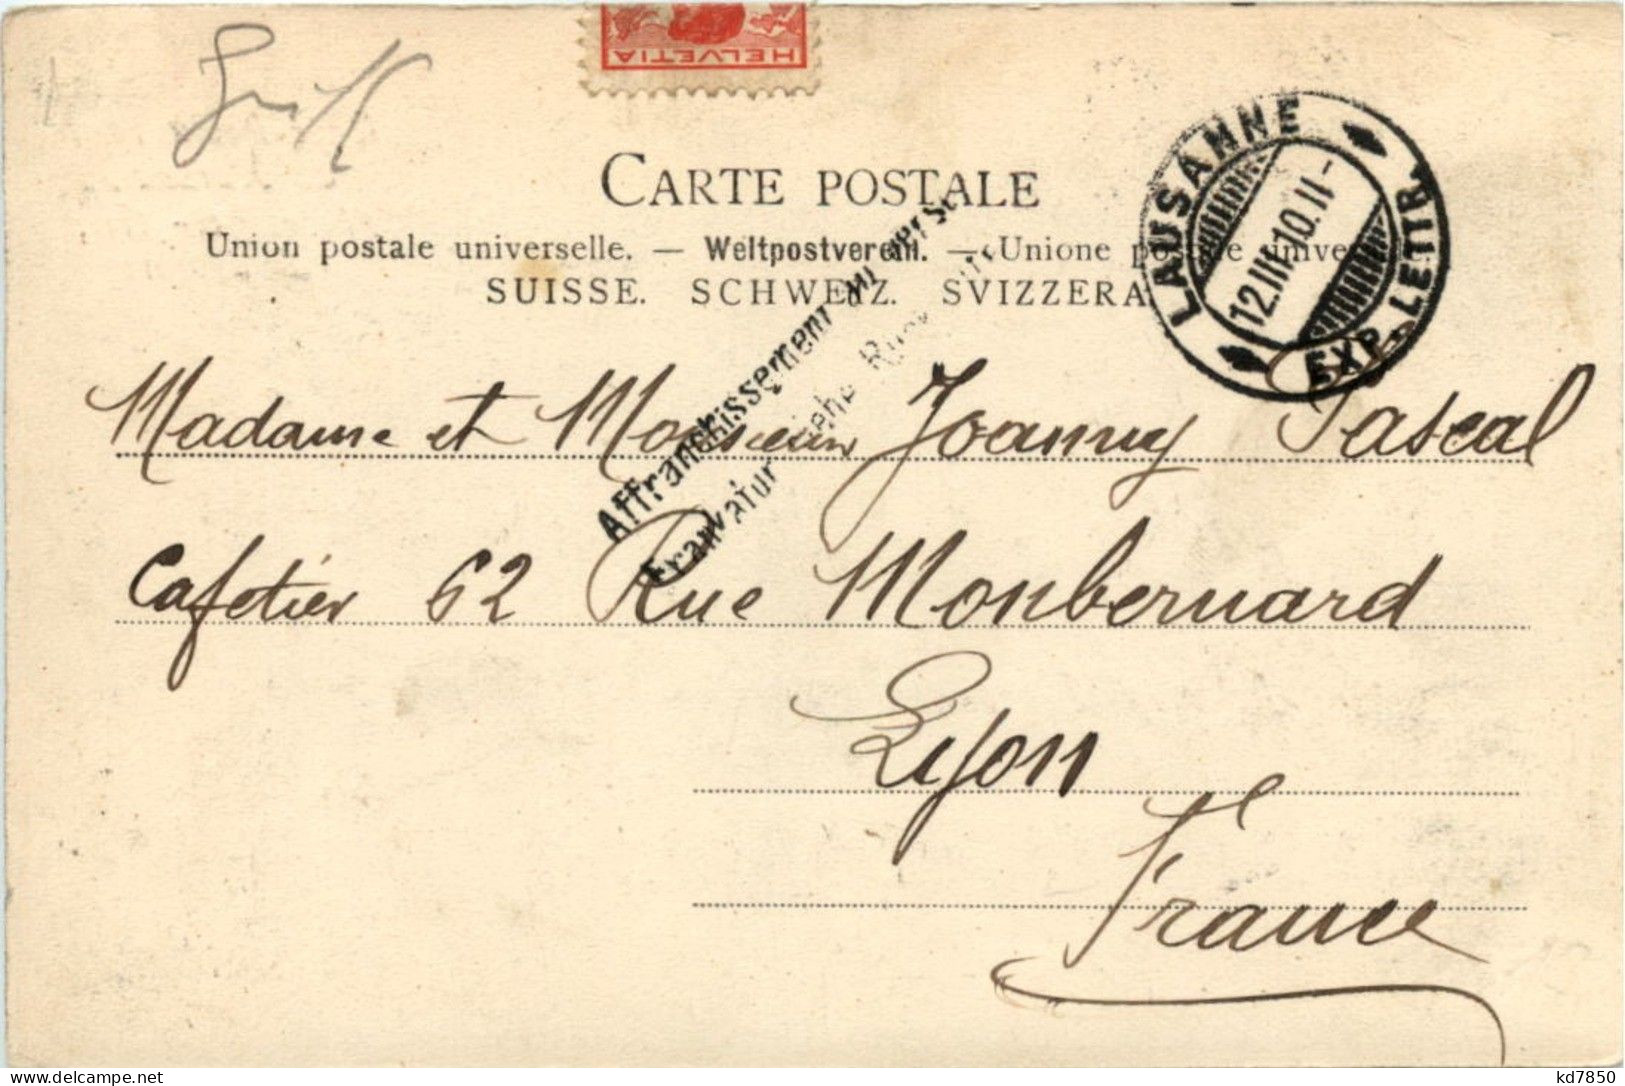 HELVETIA
CARTE POSTALE
Union postale universelle. — Weltpostverein. — Unione postale universale
SUISSE. SCHWEIZ. SVIZZERA.
LAUSANNE
12.III.10.11-
EXP. LETTR.
Affranchissement au verso
Frankatur siehe Rückseite
Madame et Monsieur Joanny Pascal
Cafetier 62 Rue Monbernard
Lyon
France
delcampe.net
kd7850